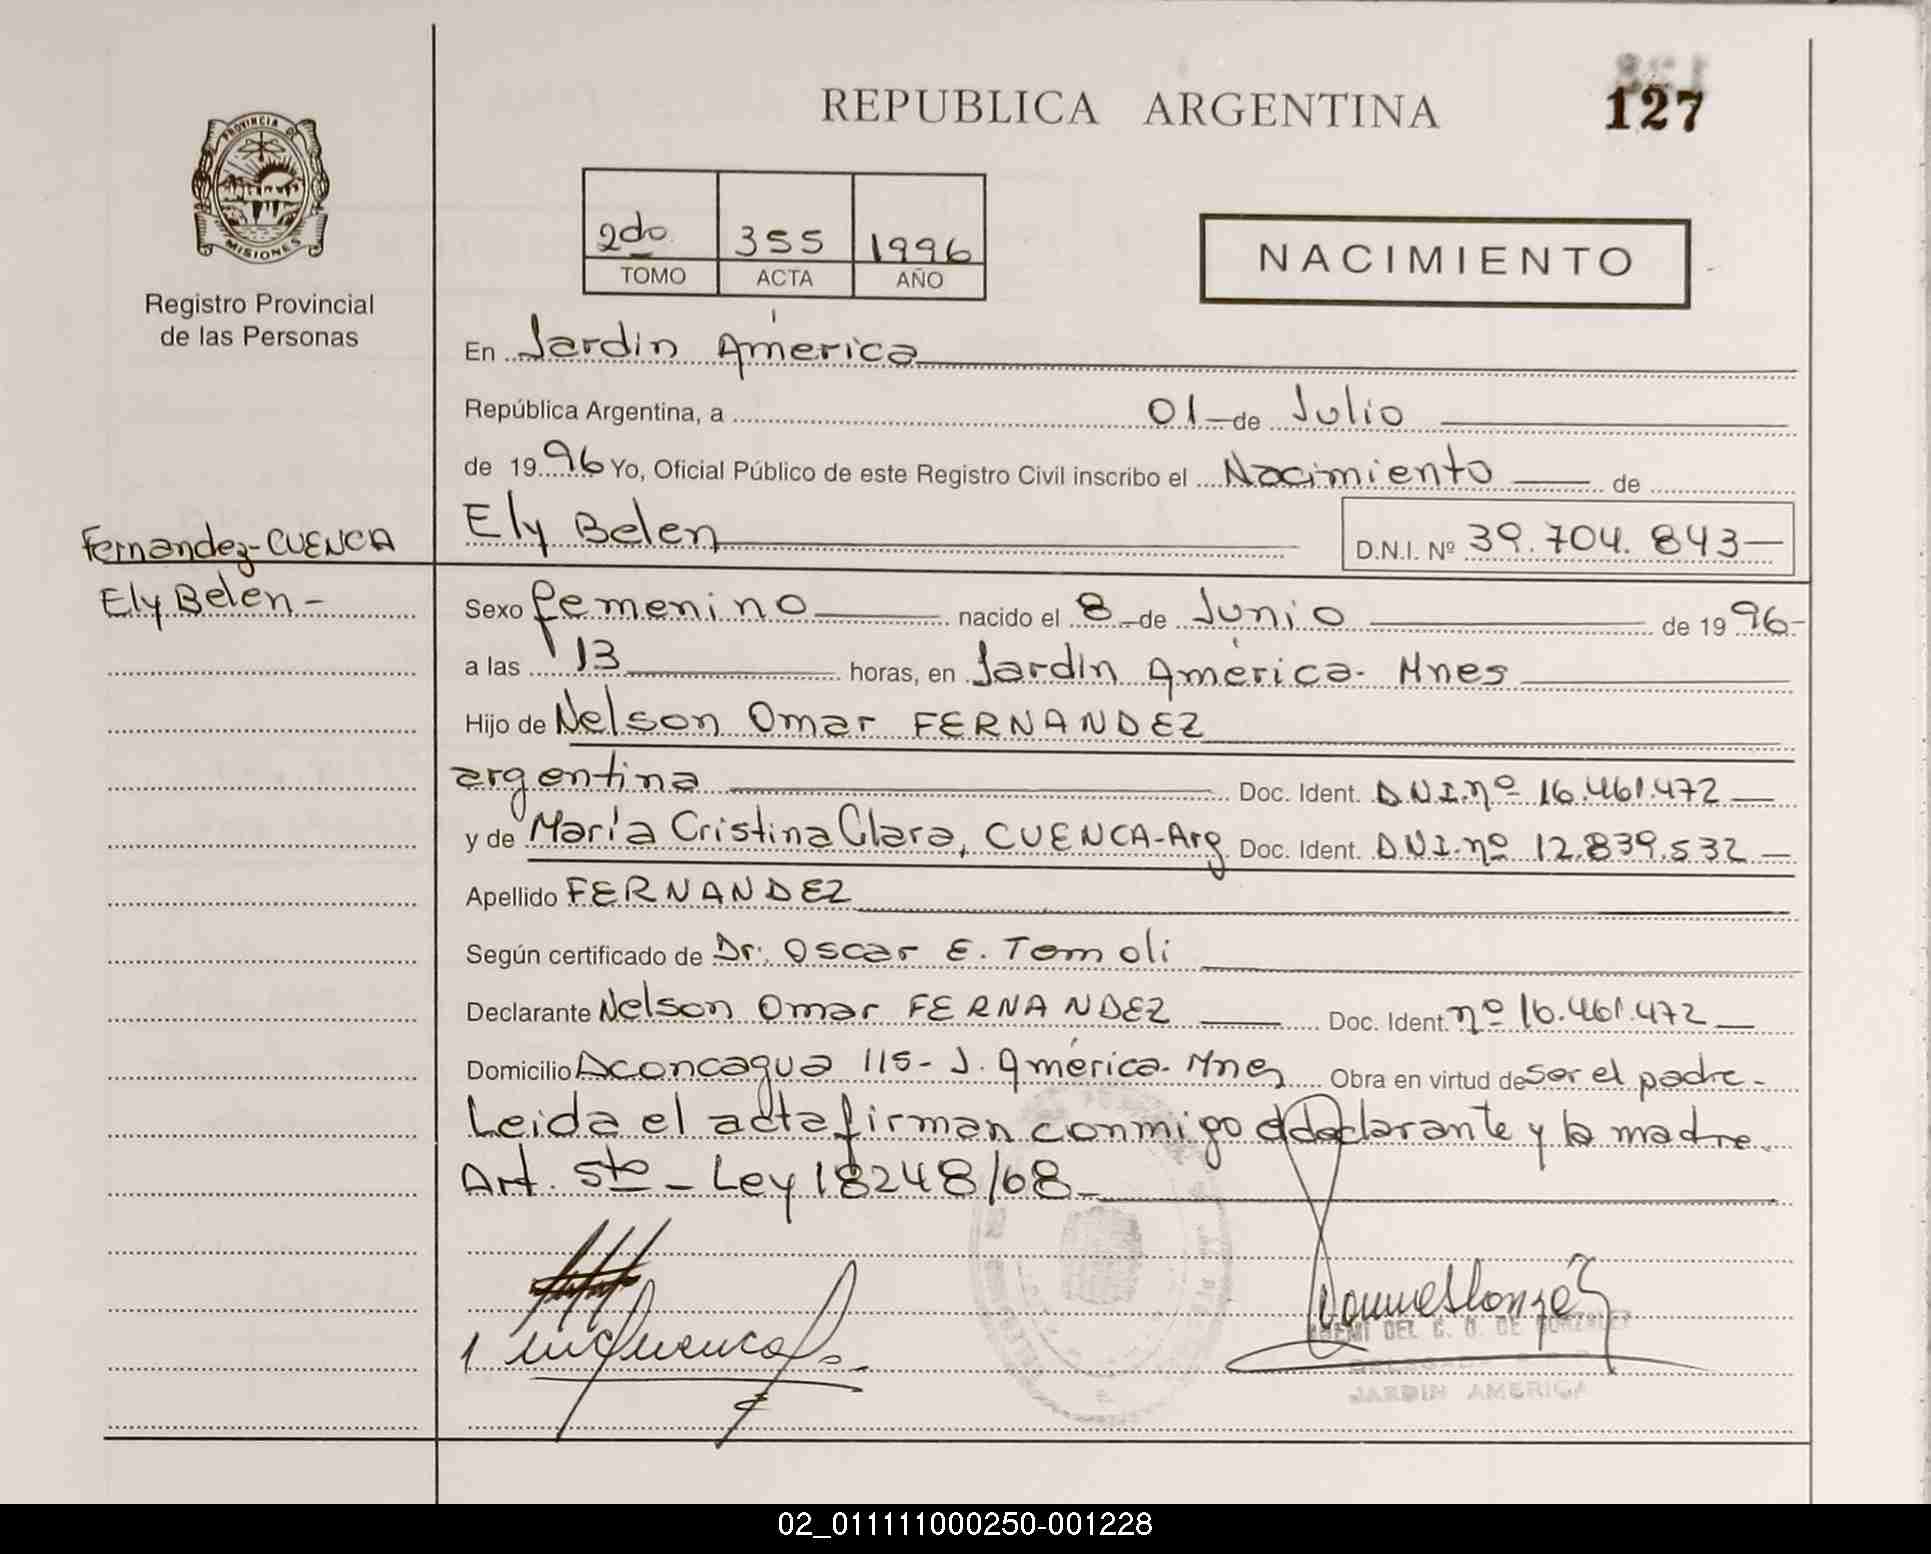 REPUBLICA ARGENTINA
127
PROVINCIA DE
MISIONES
Registro Provincial
de las Personas
2do. 355 1996
TOMO ACTA AÑO
NACIMIENTO
En Jardin América
República Argentina, a 01 de Julio
de 1996 Yo, Oficial Público de este Registro Civil inscribo el Nacimiento de
Fernandez-CUENCA
Ely Belen -
Ely Belen D.N.I. Nº 39.704.843
Sexo femenino nacido el 8 de Junio de 1996-
a las 13 horas, en Jardin América- Mnes
Hijo de Nelson Omar FERNANDEZ
argentina Doc. Ident. DNI.nº 16.461.472
y de María Cristina Clara, CUENCA-Arg Doc. Ident. DNI.nº 12.839.532
Apellido FERNANDEZ
Según certificado de Dr. Oscar E. Tomoli
Declarante Nelson Omar FERNANDEZ Doc. Ident. nº 16.461.472
Domicilio Aconcagua 115- J. América- Mnes Obra en virtud de ser el padre-
Leida el acta firman conmigo el declarante y la madre.
Art. 5to - Ley 18248/68
DEL C. D. DE GONZALEZ
JARDIN AMERICA
02_011111000250-001228